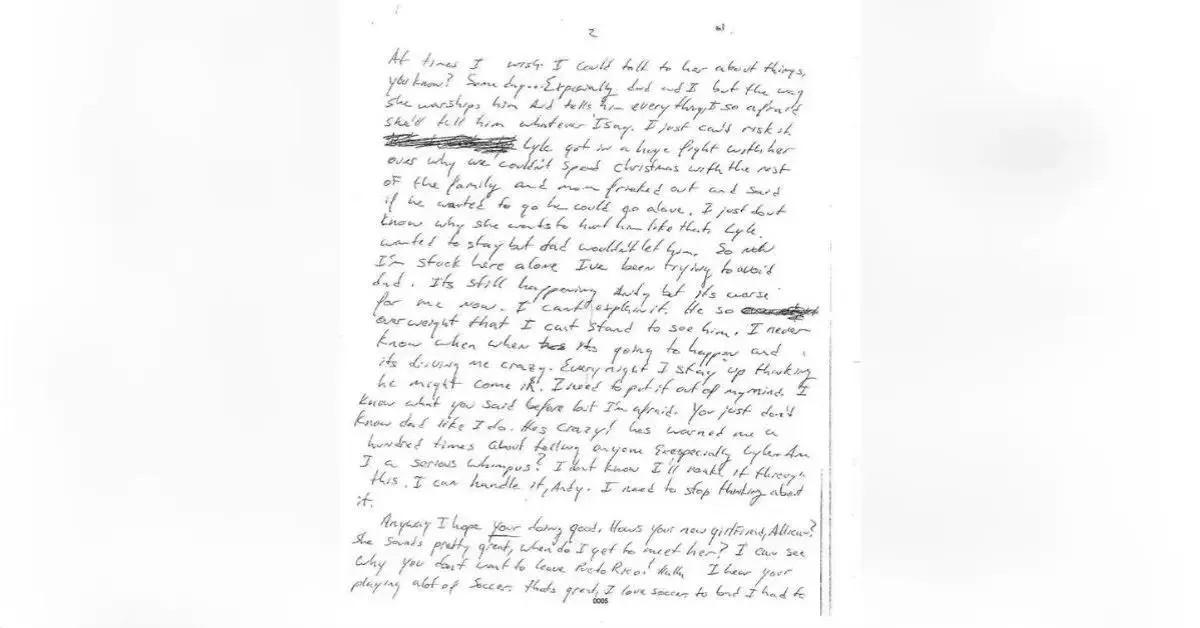 2
At times I wish I could talk to her about things,
you know? Some day... Especially dad and I but the way
she warships him and tells him every thing, I so afraid
she'd tell him whatever I say. I just can't risk it
Lyle got in a huge fight with her
over why we couldn't spend Christmas with the rest
of the family and mom freaked out and said
if he wanted to go he could go alone. I just dont
know why she wants to hurt him like that. Lyle
wanted to stay but dad wouldn't let him. So now
I'm stuck here alone I've been trying to avoid
dad. Its still happening Andy but its worse
for me now. I cant explain it. He so
overweight that I cant stand to see him. I never
know when when its going to happen and
its driving me crazy. Every night I stay up thinking
he might come in. I need to put it out of my mind. I
know what you said before but I'm afraid. You just don't
know dad like I do. Hes crazy! hes warned me a
hundred times about telling anyone especially Lyle. Am
I a serious whimpus? I dont know I'll make it through
this. I can handle it, Andy. I need to stop thinking about
it.
Anyway I hope your doing good. Hows your new girlfriend,
She sounds pretty great, when do I get to meet her? I can see
why you dont want to leave Puerto Rico! I hear your
playing alot of soccer. thats great, I love soccer. to bad I had to
0005